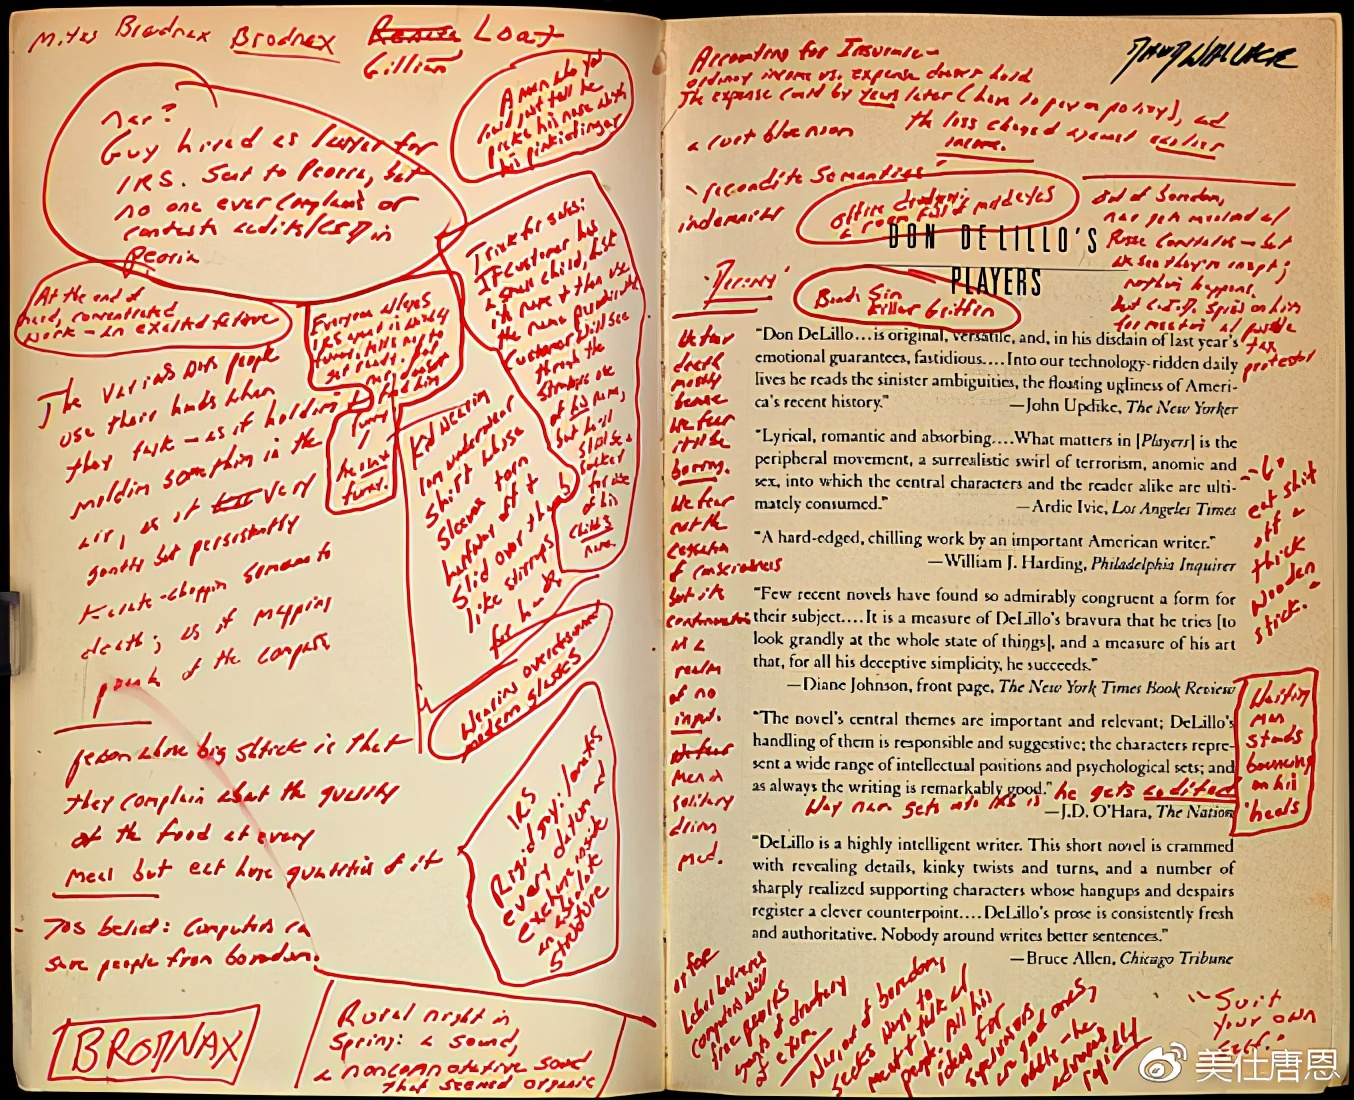 Mites Brodnax Brodnax Loat
Gillian
Nar?
Guy hired as lawyer for
IRS. Sent to Peoria, but
no one ever complains or
contests audits/CSP in
Peoria
A man who you
could just tell he
picks his nose with
his pinkie finger
At the end of
hard, concentrated
work – an exalted fatigue
Tricks for sales:
If customer has
a small child, ask
its name & then use
the name
Customer will see
through the
strategic use
of his name,
but he'll
still be a
sucker
for use
of his
child's
name.
The various ways people
use their hands when
they talk – as if holding
molding something in the
air, as if very
gently but persistently
karate-choppin someone to
death; as if mapping
points of the compass
Kid wearing
long underwear
shirt whose
sleeves torn
halfway off &
slid over thumb
like stirrups
for hands
Wearing oversized
modern glasses
person whose big shtick is that
they complain about the quality
of the food at every
meal but eat huge quantities of it
IRS
Rigid guy: locates
every datum and
exchange inside
an absolute
structure
70s belief: Computers ca
save people from boredom.
BRODNAX
Rural night in
Spring: a sound,
a nonconnotative sound
that seemed organic
DAVID WALLACE
Accounting for Insurance –
ordinary income vs. expense doesn't hold
The expense could be years later (have to pay on policy), and
the loss charged against earlier
income.
a curt bloenson
"recondite semantics"
office drudgery:
a room full of mad eyes
DON DELILLO'S
PLAYERS
Out of boredom,
nar gets involved w/
Posse Comitatus – but
we see they're inept;
nothing happens.
but C.I.D. spies on him
for meeting w/ possible
tax
protestor
Bond: Sin
Killer Griffin
We fear
death
mostly
because
we fear
it'll be
boring.
We fear
not the
cessation
of consciousness
but its
continuation
in a
realm
of no
input.
Men in
solitary
going
mad.
"Don DeLillo...is original, versatile, and, in his disdain of last year's
emotional guarantees, fastidious....Into our technology-ridden daily
lives he reads the sinister ambiguities, the floating ugliness of Ameri-
ca's recent history." —John Updike, The New Yorker
"Lyrical, romantic and absorbing....What matters in [Players] is the
peripheral movement, a surrealistic swirl of terrorism, anomic and
sex, into which the central characters and the reader alike are ulti-
mately consumed." —Ardie Ivie, Los Angeles Times
"A hard-edged, chilling work by an important American writer."
—William J. Harding, Philadelphia Inquirer
"Few recent novels have found so admirably congruent a form for
their subject....It is a measure of DeLillo's bravura that he tries [to
look grandly at the whole state of things], and a measure of his art
that, for all his deceptive simplicity, he succeeds."
—Diane Johnson, front page, The New York Times Book Review
"The novel's central themes are important and relevant; DeLillo's
handling of them is responsible and suggestive; the characters repre-
sent a wide range of intellectual positions and psychological sets; and
as always the writing is remarkably good."
—J.D. O'Hara, The Nation
Way nar gets into this is he gets audited
"DeLillo is a highly intelligent writer. This short novel is crammed
with revealing details, kinky twists and turns, and a number of
sharply realized supporting characters whose hangups and despairs
register a clever counterpoint....DeLillo's prose is consistently fresh
and authoritative. Nobody around writes better sentences."
—Bruce Allen, Chicago Tribune
eat shit
off a
thick
wooden
stick."
Waiting
man
stands
bouncing
on his
heels
computers will
free people
of drudgery
of exam.
Nar, out of boredom,
seeks ways to
meet & talk w/
people. All his
ideas for
supervisors
are good ones,
he
advances
rapidly
"Suit
your own
self."
美仕唐恩